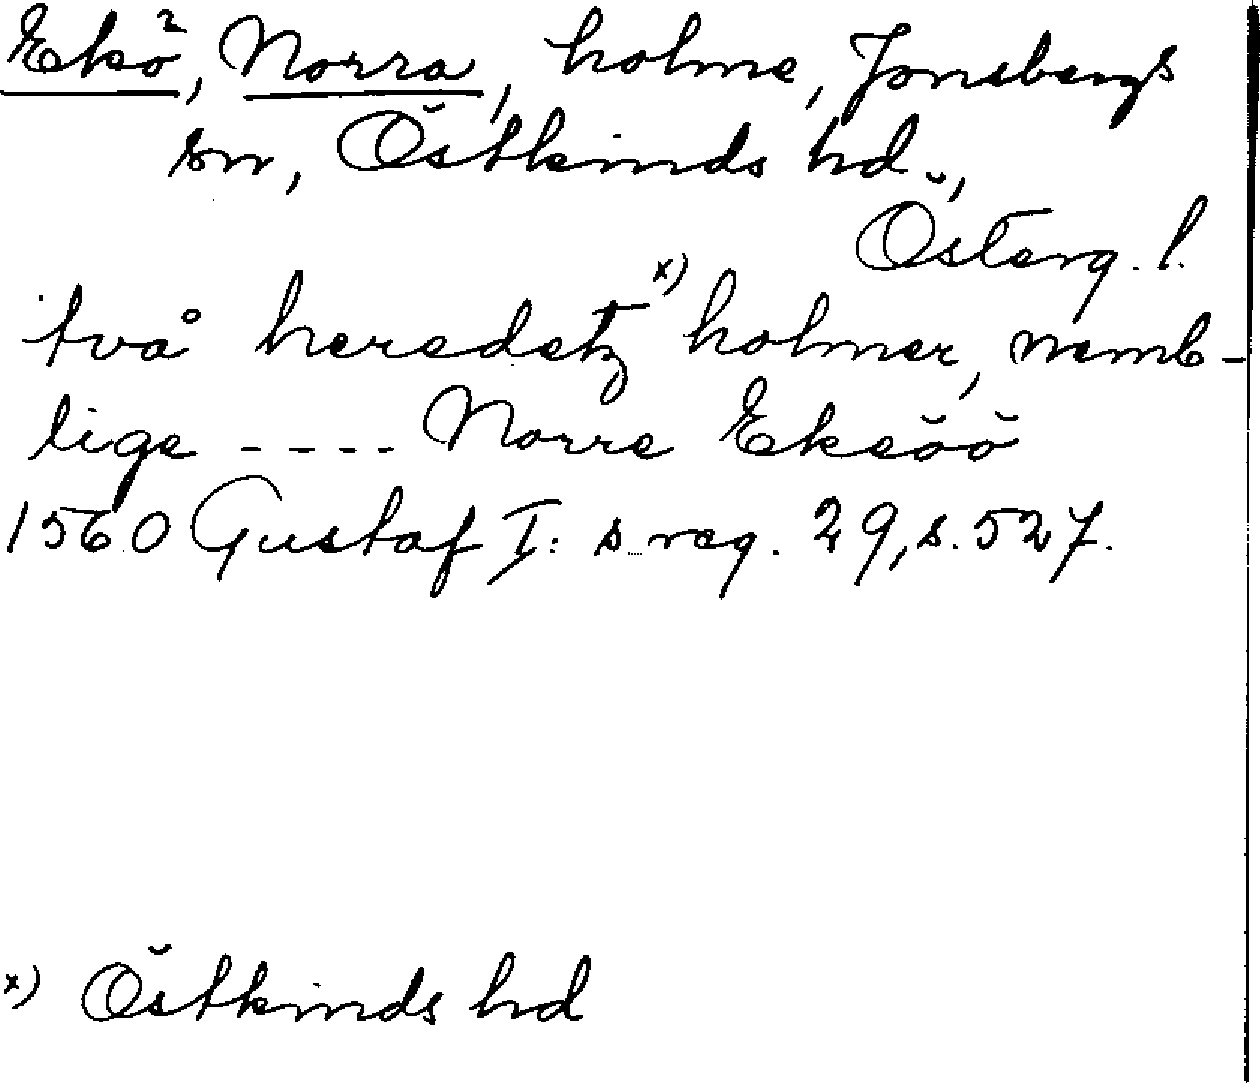 Ekö², Norra, holme, Jonsbergs
sn, Östkinds hd.,
Österg. l.
två heredetz x) holmer, nemb-
lige ---- Norre Ekeöö
1560 Gustaf I: s reg. 29, s. 527.
x) Östkinds hd